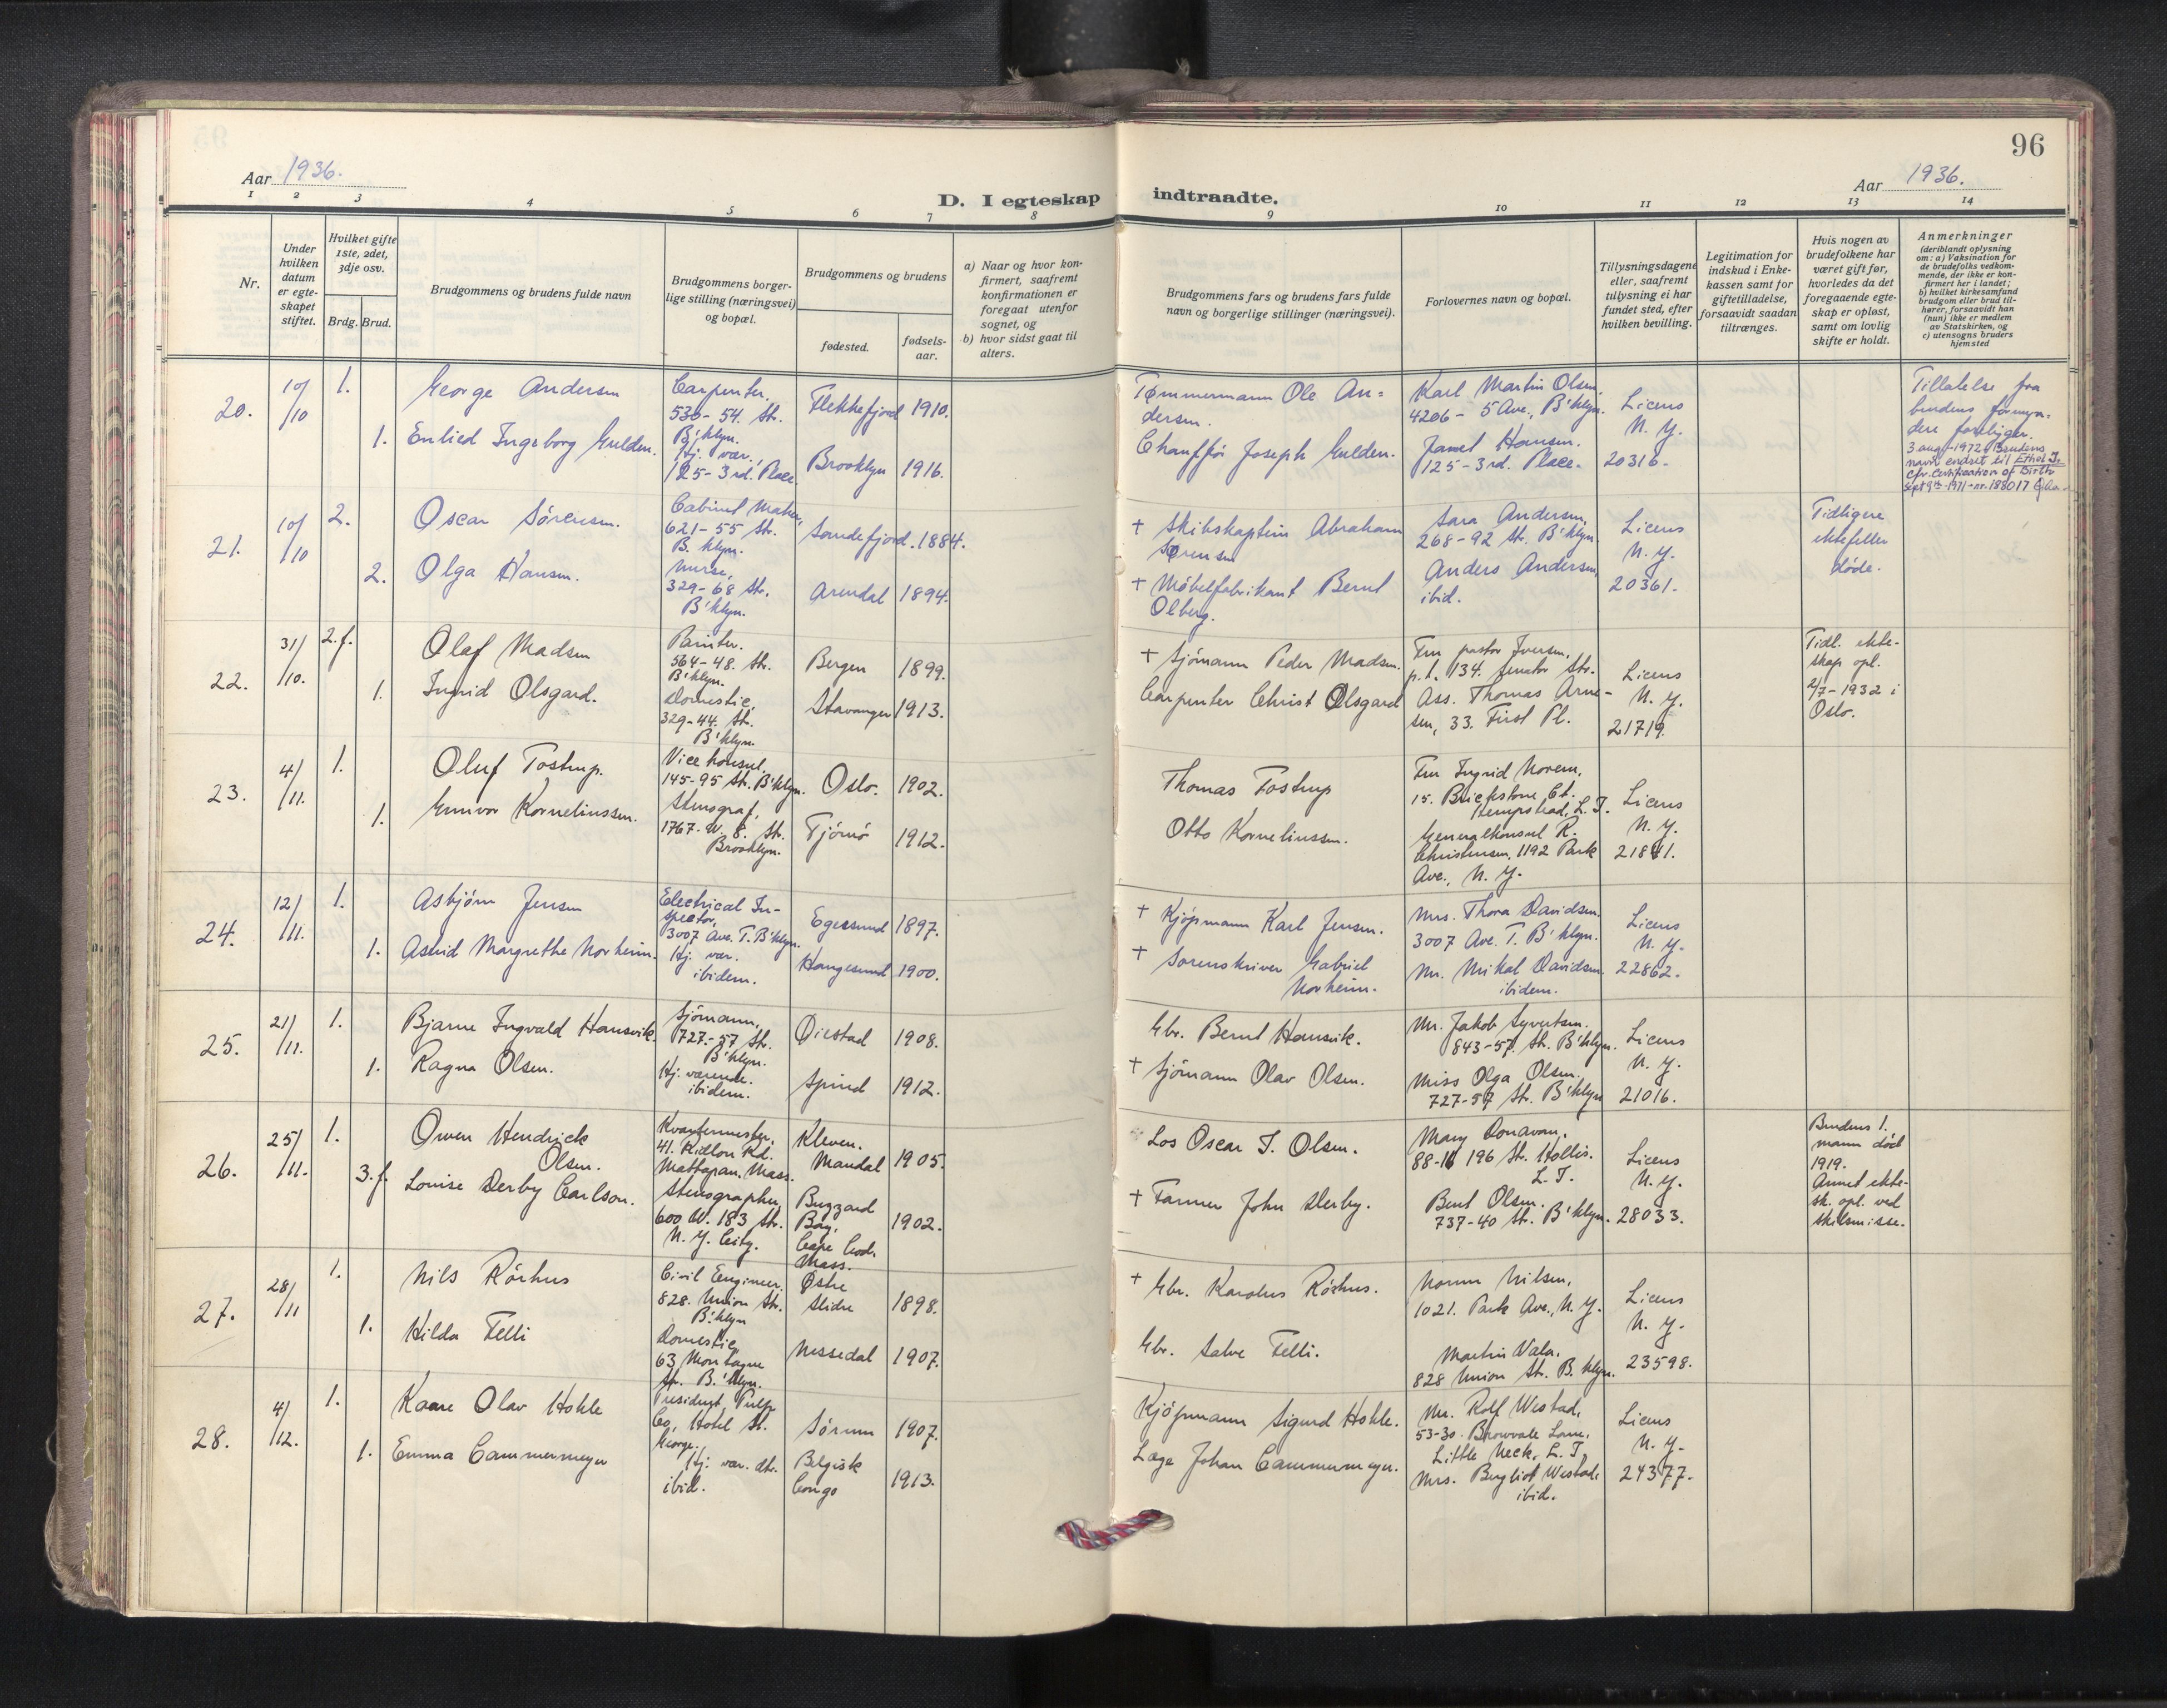 96
Aar 1936.
Aar 1936.
D. I egteskap indtraadte.
1 2 3 4 5 6 7 8 9 10 11 12 13 14
Nr.
Under hvilken datum er egte-skapet stiftet.
Hvilket gifte 1ste, 2det, 3dje osv.
Brdg. Brud.
Brudgommens og brudens fulde navn
Brudgommens borger-lige stilling (næringsvei) og bopæl.
Brudgommens og brudens
fødested.
fødsels-aar.
a) Naar og hvor kon-firmert, saafremt konfirmationen er foregaat utenfor sognet, og
b) hvor sidst gaat til alters.
Brudgommens fars og brudens fars fulde navn og borgerlige stillinger (næringsvei).
Forlovernes navn og bopæl.
Tillysningsdagene eller, saafremt tillysning ei har fundet sted, efter hvilken bevilling.
Legitimation for indskud i Enke-kassen samt for giftetilladelse, forsaavidt saadan tiltrænges.
Hvis nogen av brudefolkene har været gift før, hvorledes da det foregaaende egte-skap er opløst, samt om lovlig skifte er holdt.
Anmerkninger
(deriblandt oplysning om: a) Vaksination for de brudefolks vedkom-mende, der ikke er kon-firmert her i landet; b) hvilket kirkesamfund brudgom eller brud til-hører, forsaavidt han (hun) ikke er medlem av Statskirken, og c) utensogns bruders hjemsted
20.
10/10
1.
George Andersen
Carpenter.
530-54. Str.
B'klyn.
Flekkefjord 1910.
Tømmermann Ole An-
dersen.
Karl Martin Olsen,
4206- 5 Ave., B'klyn.
1. Enlied Ingeborg Gulden.
Hj. vær.,
125-3rd. Place.
Brooklyn 1916.
Chauffør Joseph Gulden.
Janet Hansen.
125-3rd. Place.
Licens
N. Y.
20316.
Tillatelse fra
brudens formyn-
dere foreligger.
3. aug. 1972: Brudens
navn endret til Ethel I.
cfr. Certification of Birth
sept 9th 1971 - nr. 188017
21.
10/10
2.
Oscar Sørensen.
Cabinet Maker,
621-55 Str.
B.klyn.
Sandefjord. 1884.
+ Skibskaptein Abraham
Sørensen
Sara Andersen,
268-92 Str. B'klyn
2. Olga Hansen.
Nurse,
329-68 Str.
B'klyn.
Arendal 1894.
+ Møbelfabrikant Bernt
Olberg.
Anders Andersen,
ibid.
Licens
N. Y.
20361.
Tidligere
ektefeller
døde.
22.
31/10.
2.f.
Olaf Madsen
Painter.
564-48. Str.
B'klyn.
Bergen 1899.
+ Sjömann Peder Madsen.
Fru pastor Iversen,
p.t. 134. Senator Str.
1. Ingrid Olsgard.
Domestic,
329-44. Str.
B'klyn.
Stavanger 1913.
Carpenter Christ Olsgard
Ass. Thomas Arne-
sen, 33. First Pl.
Licens
N. Y.
21719.
Tidl. ekte-
skap opl.
2/7-1932 i
Oslo.
23.
4/11.
1.
Oluf Tostrup.
Vice konsul.
145-95 Str. B'klyn.
Oslo. 1902.
Thomas Tostrup
Fru Ingrid Norem,
15. Brickstone Ct.
Hempstead, L. I.
1. Gunvor Korneliussen.
Stenograf,
1767- W. 8. Str.
Brooklyn.
Tjömö 1912.
Otto Korneliussen.
Generalkonsul R.
Christensen, 1192 Park
Ave., N. Y.
Licens
N. Y.
21841.
24.
12/11.
1.
Asbjörn Jensen
Electrical In-
spector,
3007 Ave. T. B'klyn.
Egersund 1897.
+ Kjöpmann Karl Jensen.
Mrs. Thora Davidsen.
3007 Ave. T. B'klyn.
1. Astrid Margrethe Norheim.
Hj. vær.
ibidem.
Haugesund 1900.
+ Sorenskriver Gabriel
Norheim.
Mr. Mikal Davidsen.
ibidem.
Licens
N. Y.
22862.
25.
21/11.
1.
Bjarne Ingvald Hansvik.
Sjömann,
727-57 Str.
B'klyn.
Øiestad 1908.
Gbr. Bernt Hansvik.
Mr. Jakob Syvertsen.
843-57. Str. B'klyn.
1. Ragna Olsen.
Hj. værende.
ibidem.
Spind 1912.
+ Sjömann Olav Olsen.
Miss Olga Olsen.
727-57 Str. B'klyn
Licens
N. Y.
21016.
26.
25/11.
1.
Owen Hendrick
Olsen.
Kvartermester,
41. Ridlon Rd.
Mattapan. Mass.
Kleven.
Mandal 1905.
Los Oscar T. Olsen.
Mary Donavan,
88-16 196 Str. Hollis.
L. I.
3.f. Louise Derby Carlson.
Stenographer,
600 W. 183 Str.
N. Y. City.
Buzzard
Bay,
Cape Cod.
Mass.
1902.
+ Farmer John Derby.
Bent Olsen.
737-40 Str. B'klyn.
Licens
N. Y.
28033.
Brudens 1.
mann död
1919.
Annet ekte-
sk. opl. ved
skilsmisse.
27.
28/11
1.
Nils Rörhus
Civil Engineer,
828. Union Str.
B'klyn
Østre
Slidre 1898.
+ Gbr. Karolus Rörhus.
Norun Nilsen,
1021. Park Ave., N. Y.
1. Hilda Felli
Domestic,
63 Montague
Str. B.'klyn.
Nissedal 1907.
Gbr. Salve Felli.
Martin Vala,
828 Union Str. B.klyn.
Licens
N. Y.
23598.
28.
4/12.
1.
Kaare Olav Hohle
President, Pulp
Co, Hotel St.
George.
Sörum 1907.
Kjöpmann Sigurd Hohle.
Mr. Rolf Westad,
53-30. Browvale Lane,
Little Neck, L. I.
1. Emma Cammermeyer
Hj. vær. dtr.
ibid.
Belgisk
Congo 1913.
Læge Johan Cammermeyer.
Mrs. Bergliot Westad,
ibid.
Licens
N. Y.
24377.